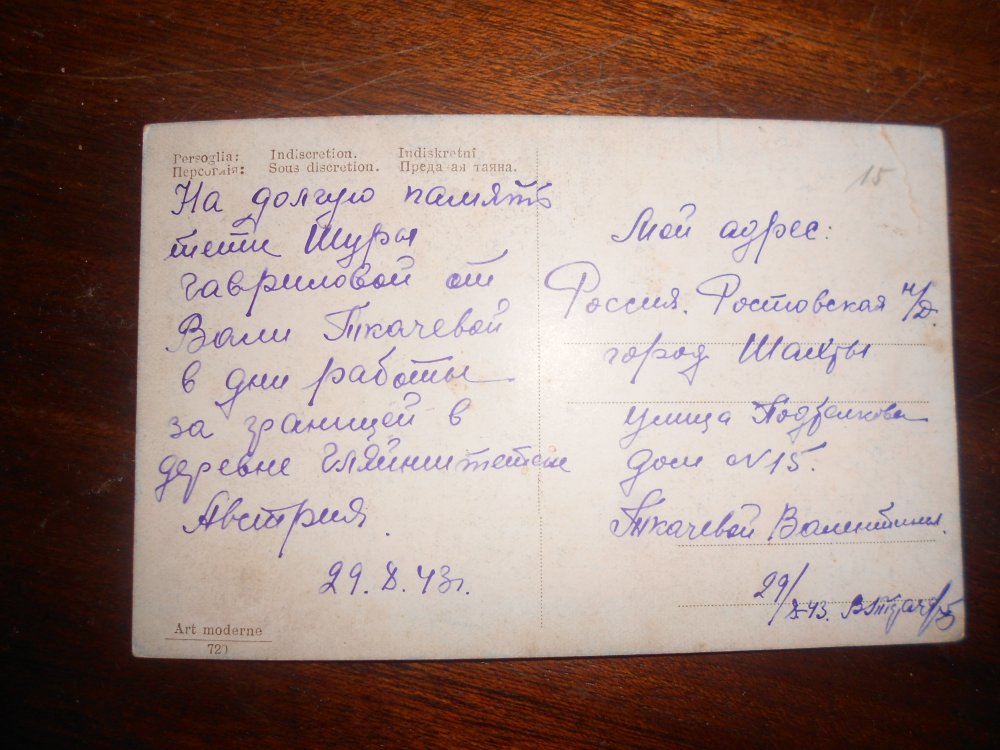 Persoglia: Indiscretion. Indiskretní
Персоглія: Sous discretion. Преда ая таяна.
На долгую память
тети Шуры
Гавриловой от
Вали Ткачевой
в дни работы
за границей в
деревне Гляйнштетен
Австрия.
29. X. 43г.
Art moderne
720
15
Мой адрес:
Россия. Ростовская н/Д.
город Шахты
улица Подтелкова
дом №15.
Ткачевой Валентины.
29/X-43.